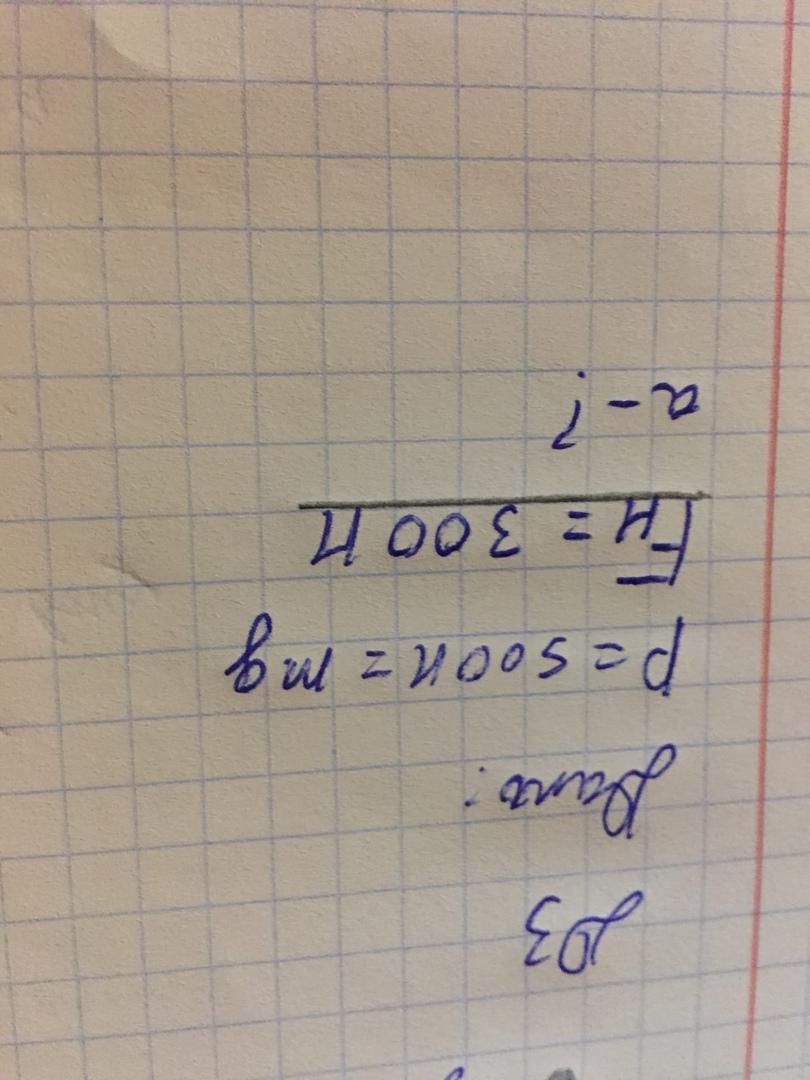 ДЗ
Дано:
P = 500н = mg
Fн = 300 Н
a - ?